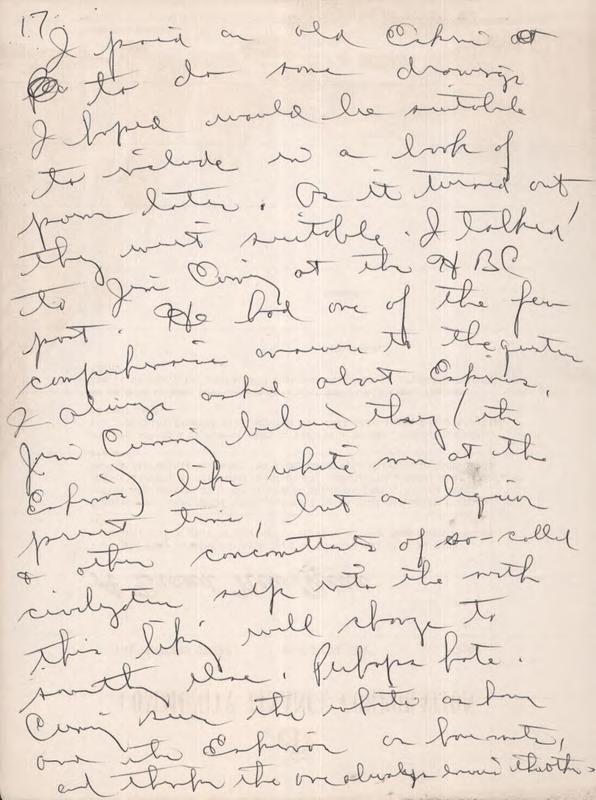 17.
I paid an old Eskimo
to do some drawings
I hoped would be suitable
to include in a book of
poems later. As it turned out,
they weren't suitable. I talked
to Jim Cuming at the HBC
post. He had one of the few
comprehensive answers to the question
I always asked about Eskimos.
Jim Cuming believes they (the
Eskimos) like white men at the
present time, but as liquor
& other concomittants of so-called
civilization seep into the north
this liking will change to
something else. Perhaps hate.
Cuming sees the white as
and the Eskimos as
and thinks the one always the other